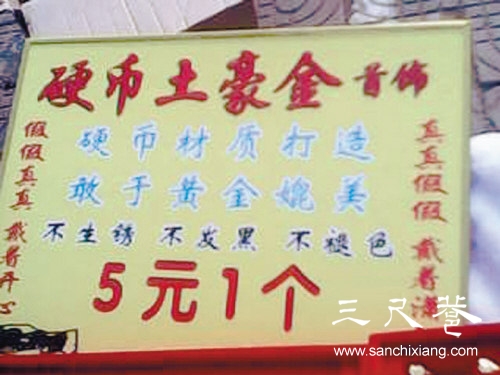 硬币土豪金首饰
硬币材质打造
敢于黄金媲美
不生锈 不发黑 不褪色
5元1个
假假真真 戴着开心
真真假假 戴着
三尺巷
www.sanchixiang.com